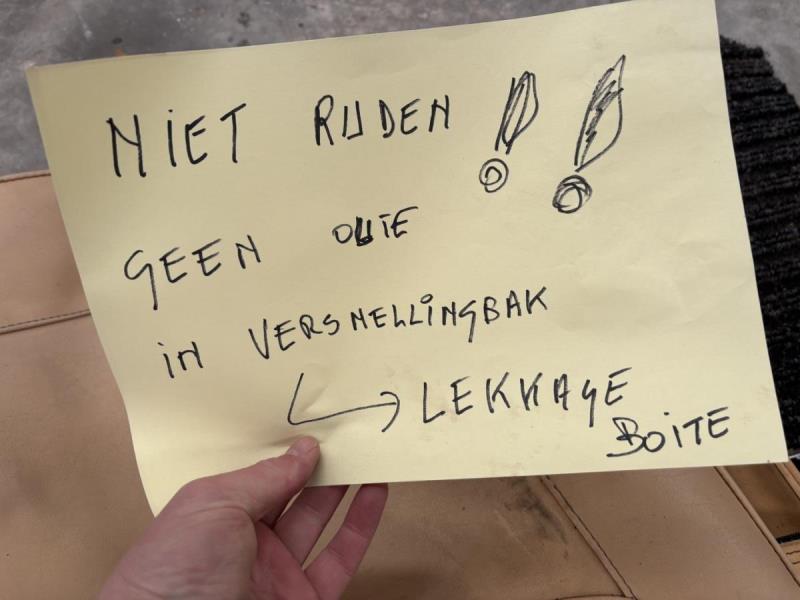 NIET RIJDEN !!
GEEN OLIE
in VERSNELLINGBAK
→ LEKKAGE
BOITE